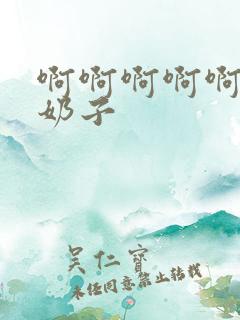 啊啊啊啊啊
奶子
吴仁宝
未经同意禁止转载